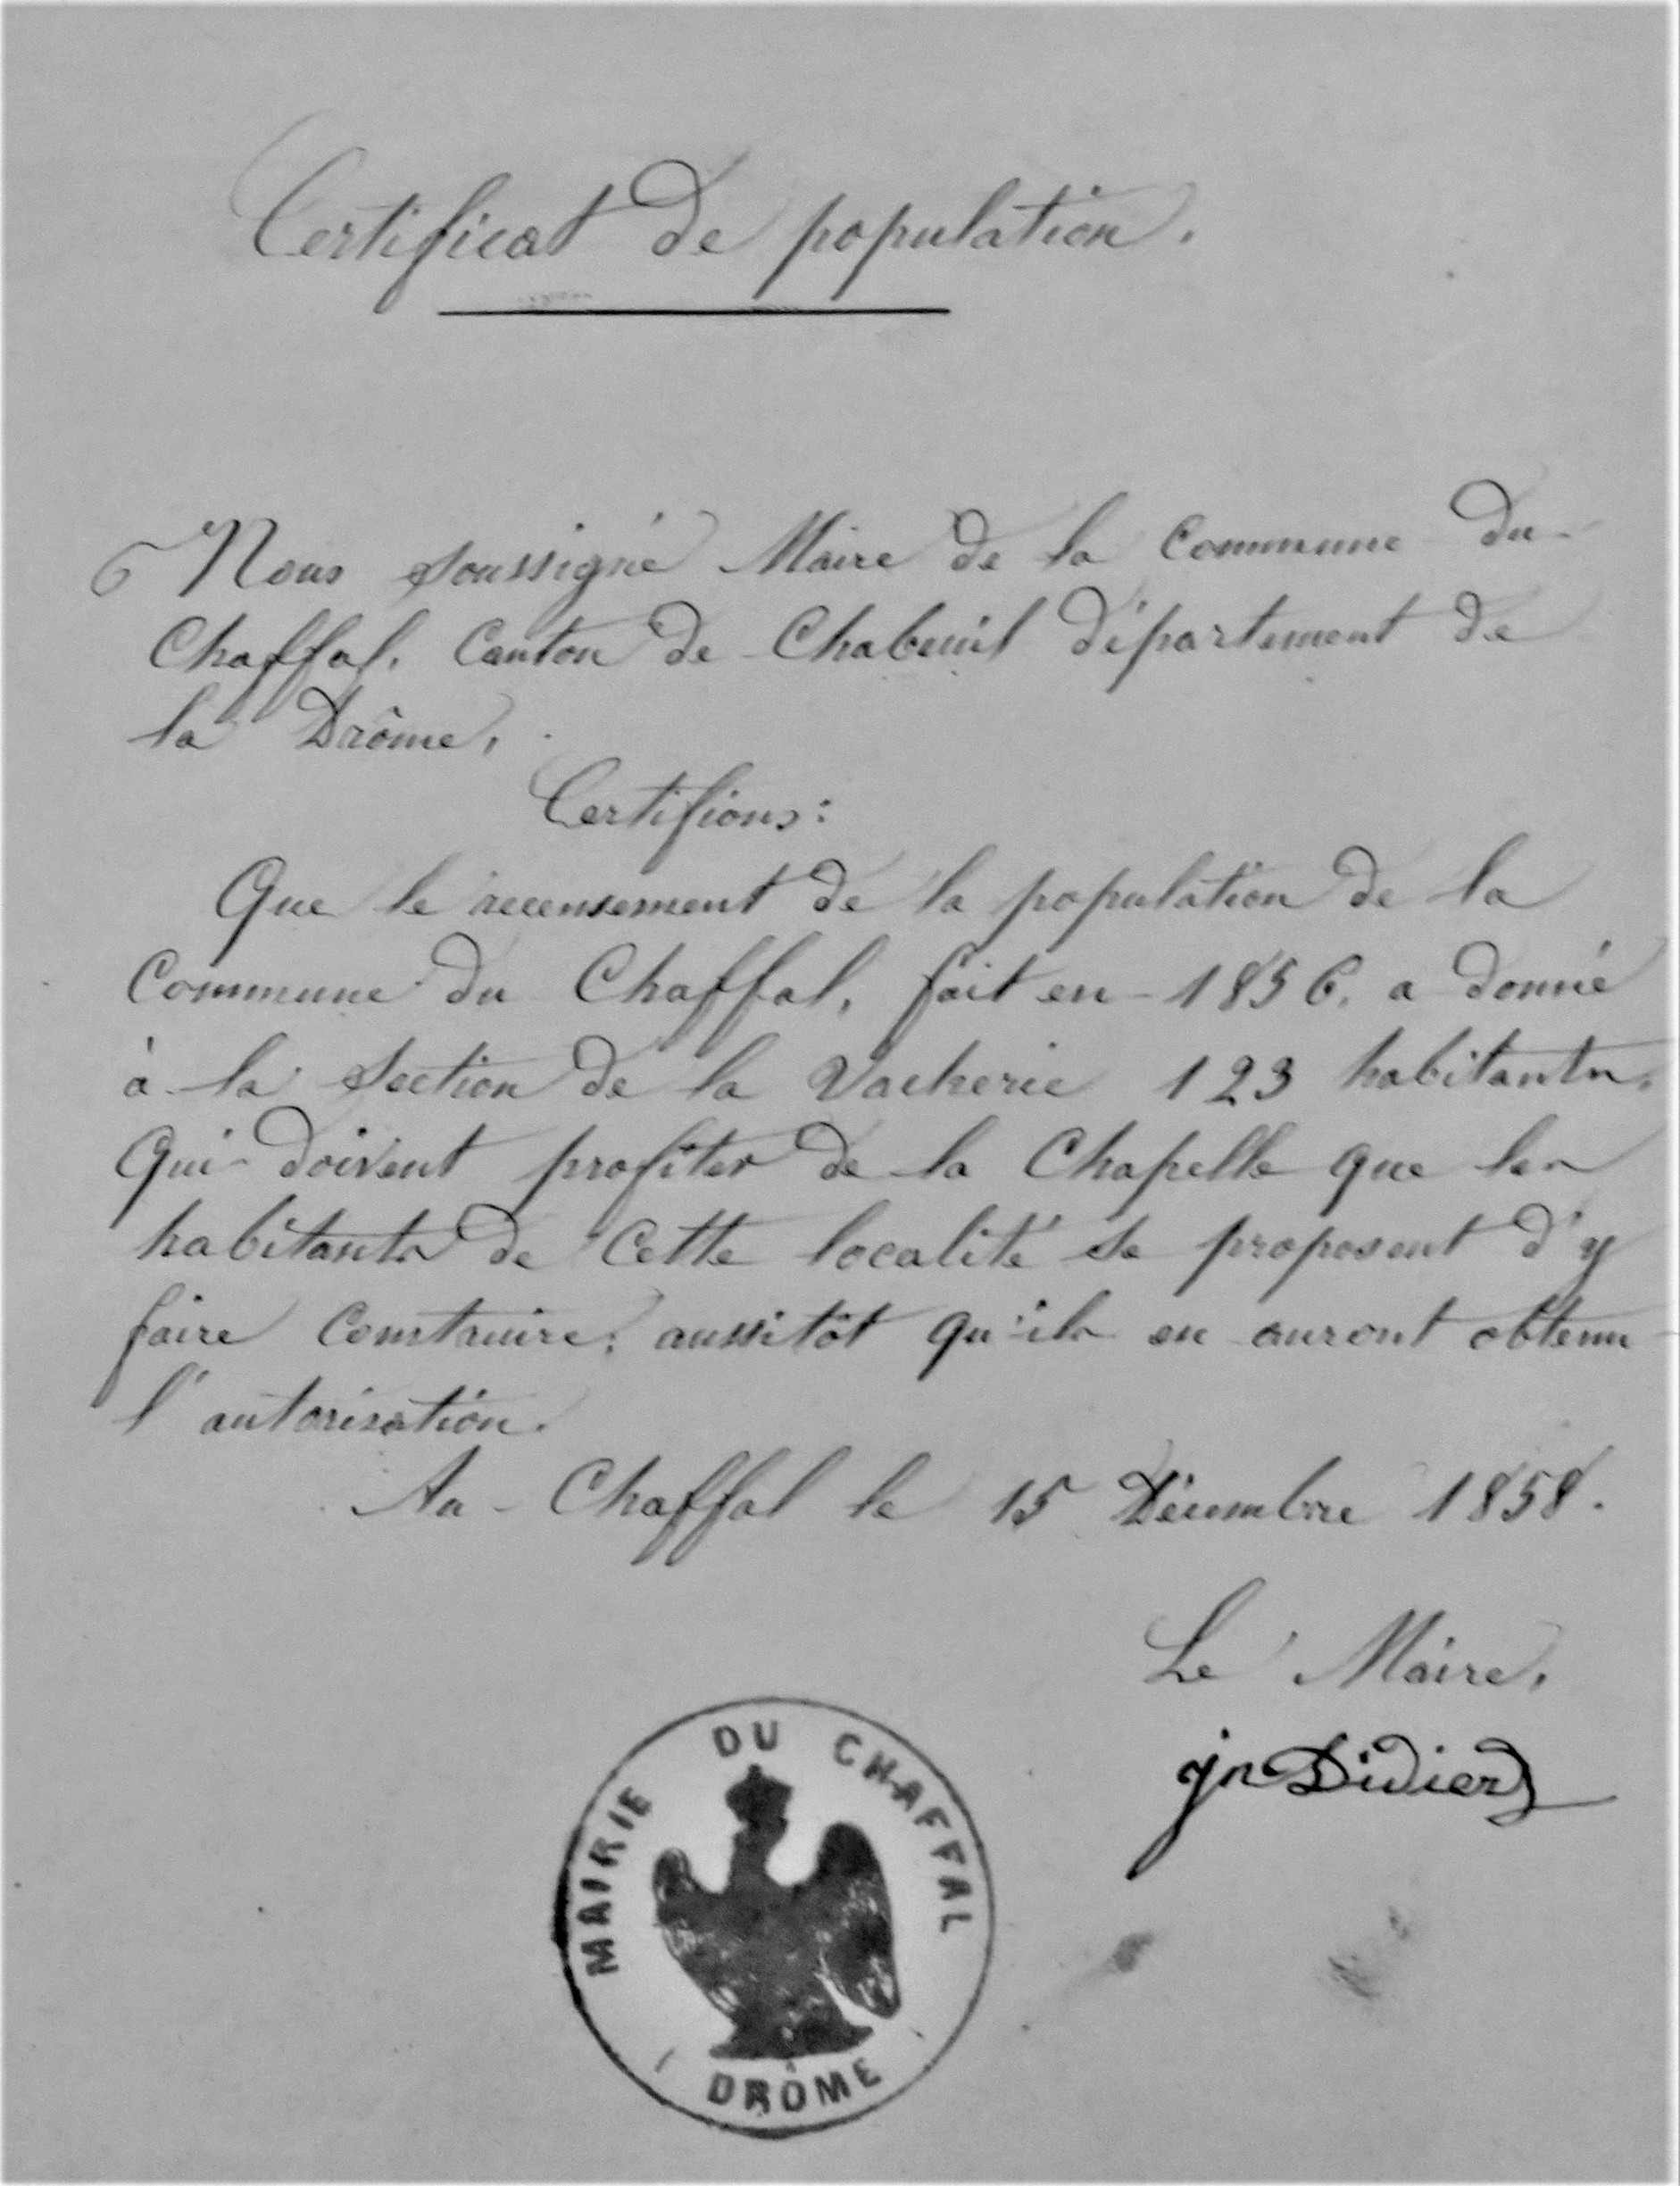 Certificat de population.
Nous soussigné Maire de la Commune du
Chaffal, Canton de Chabeuil département de
la Drôme,
Certifions:
Que le recensement de la population de la
Commune du Chaffal, fait en 1856, a donné
à la section de la Vacherie 123 habitants,
Qui doivent profiter de la Chapelle que les
habitants de Cette localité se proposent d'y
faire Construire, aussitôt qu'ils en auront obtenu
l'autorisation.
Au Chaffal le 15 Décembre 1858.
Le Maire,
jn Didier
MAIRIE DU CHAFFAL
DRÔME